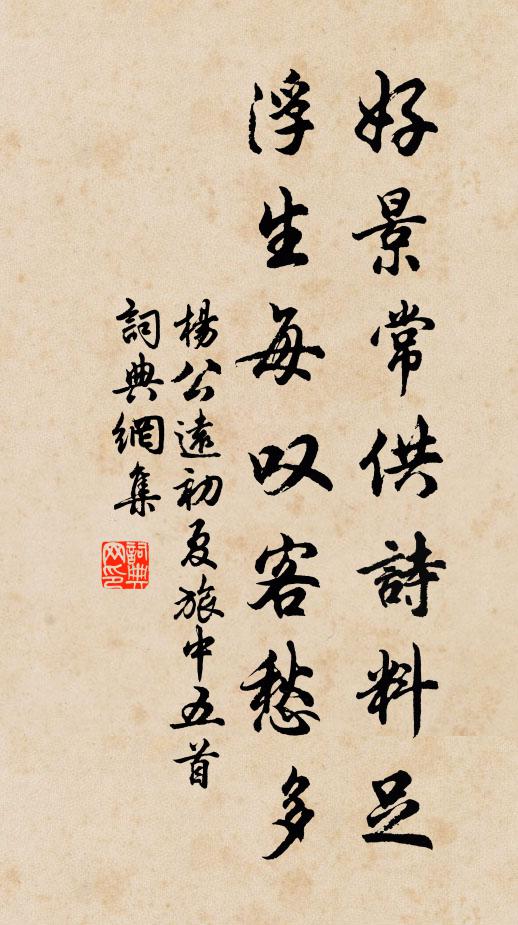 好景常供詩料足
浮生每叹客愁多
楊公遠初夏旅中五首
詞典網集
詞典网印